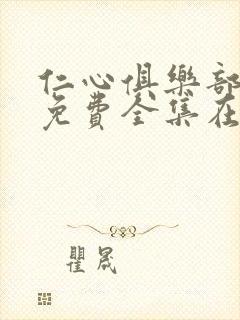 仁心俱樂部
免費全集在
瞿晟